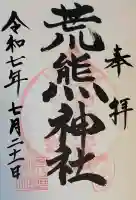 奉拝
荒熊神社
令和七年七月二十一日